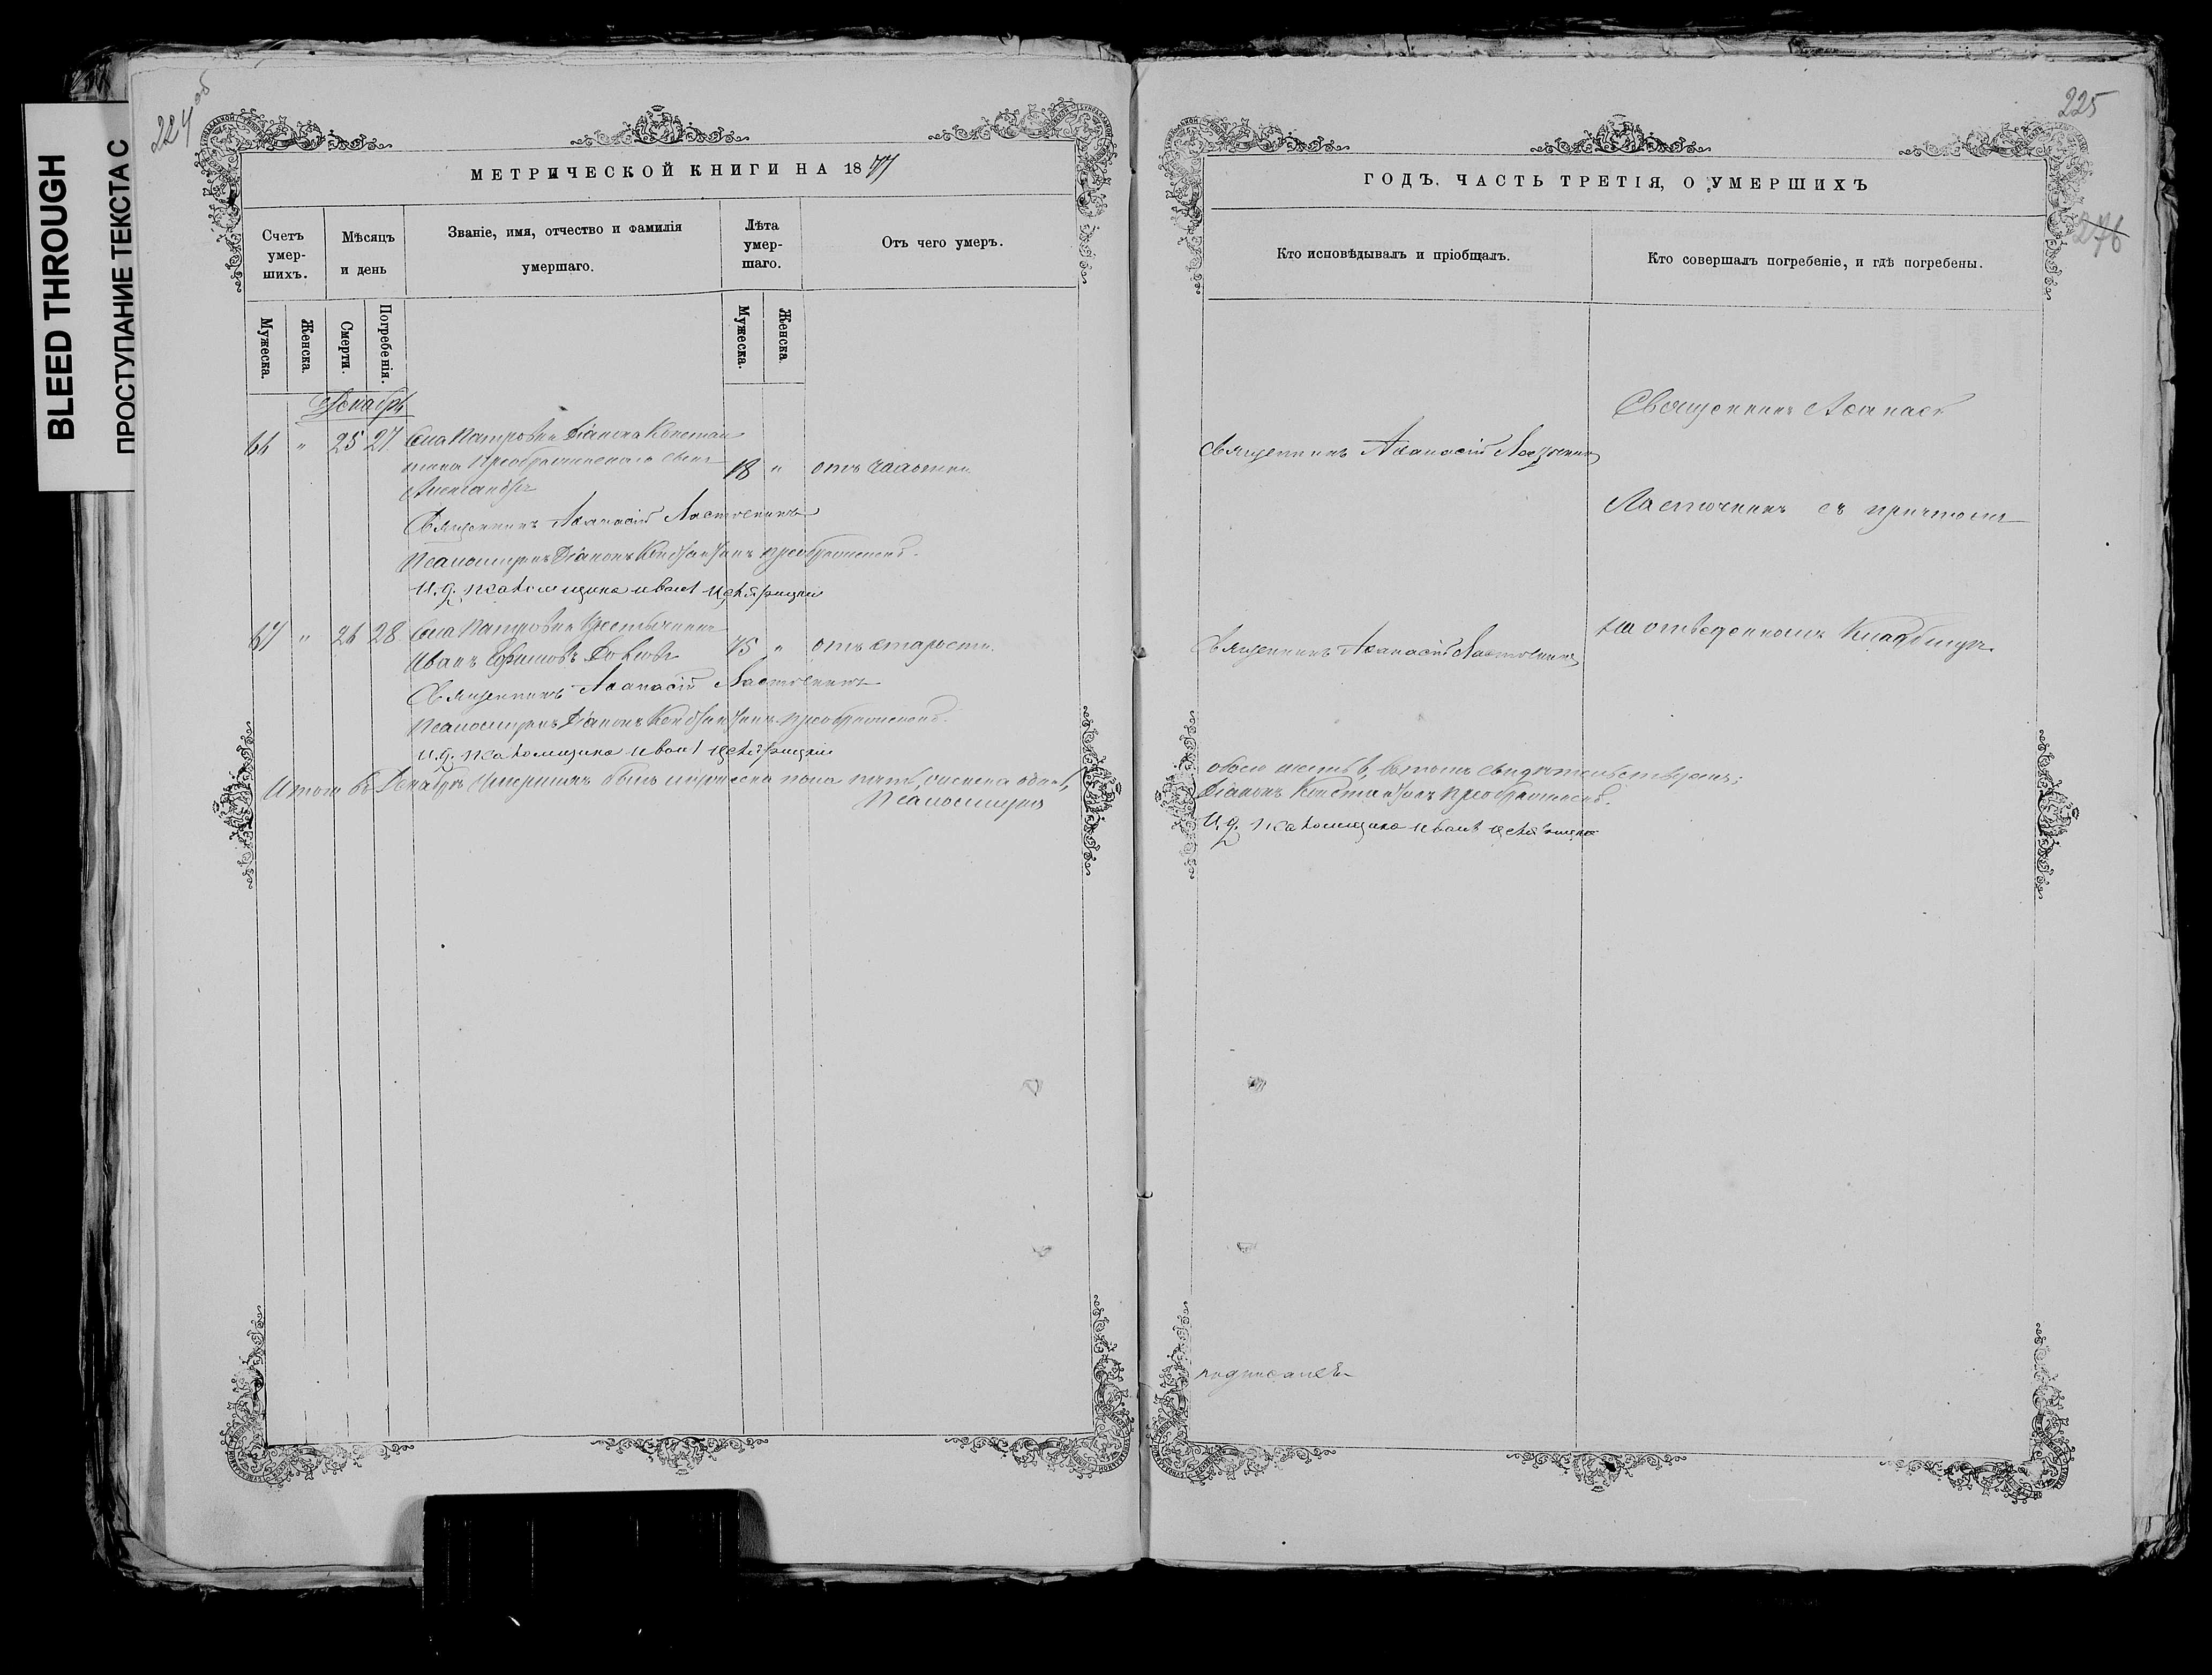 BLEED THROUGH
ПРОСТУПАНИЕ ТЕКСТА С
224 об
МЕТРИЧЕСКОЙ КНИГИ НА 1877
Счетъ умер-шихъ.
Мѣсяцъ и день
Званіе, имя, отчество и фамилія
умершаго.
Лѣта умер-шаго.
Отъ чего умеръ.
Мужеска.
Женска.
Смерти.
Погребенія.
Мужеска.
Женска.
Декабрь
66 " 25 27 Села Петровки Діакона Констан
тина Преображенскаго сынъ 18 " отъ чахотки
Александръ
Священникъ Афанасій Ласточкинъ
Псаломщикъ Діаконъ Константинъ Преображенскій.
И. д. псаломщика Иванъ
67 " 26 28 Села Петровки Крестьянинъ
Иванъ Ефимовъ 75 " отъ старости.
Священникъ Афанасій Ласточкинъ
Псаломщикъ Діаконъ Константинъ Преображенскій.
И. д. псаломщика Иванъ
Итого въ Декабрѣ Умершихъ было мужеска пола пять, женска одна,
Псаломщикъ
225
276
ГОДЪ. ЧАСТЬ ТРЕТІЯ, О УМЕРШИХЪ
Кто исповѣдывалъ и пріобщалъ.
Кто совершалъ погребеніе, и гдѣ погребены.
Священникъ Афанасій
Священникъ Афанасій Ласточкинъ
Ласточкинъ съ причтомъ
на отведенномъ Кладбищѣ.
Священникъ Афанасій Ласточкинъ
обоего шесть, въ томъ свидѣтельствуемъ;
Діаконъ Константинъ Преображенскій.
И. д. псаломщика Иванъ
подписалъ